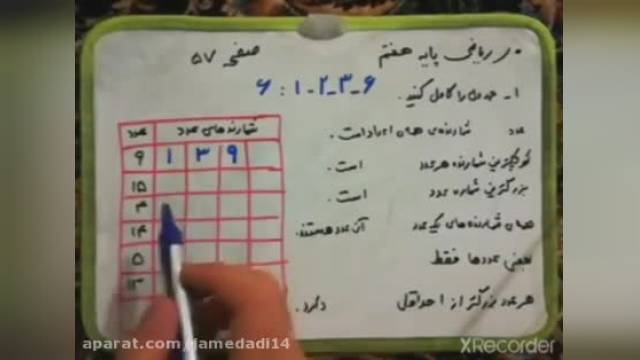 ریاضی پایه هفتم صفحه ۵۷
۱ـ جدول را کامل کنید. ۶ : ۱ـ۲ـ۳ـ۶
عدد شمارنده‌ی همان اعداد است.
کوچکترین شمارنده هر عدد است.
بزرگترین شمارنده عدد است.
همان شمارنده‌های یک عدد آن عدد هستند.
بعضی عددها فقط
هر عدد بزرگتر از ۱ حداقل دارد.
عدد شمارنده‌های عدد
۹ ۱ ۳ ۹
۱۵
۴
۱۴
۵
۱۳
aparat.com/Jamedadi14
XRecorder